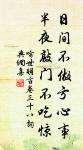 日间不做亏心事
半夜敲门不吃惊
喻世明言卷三十八词